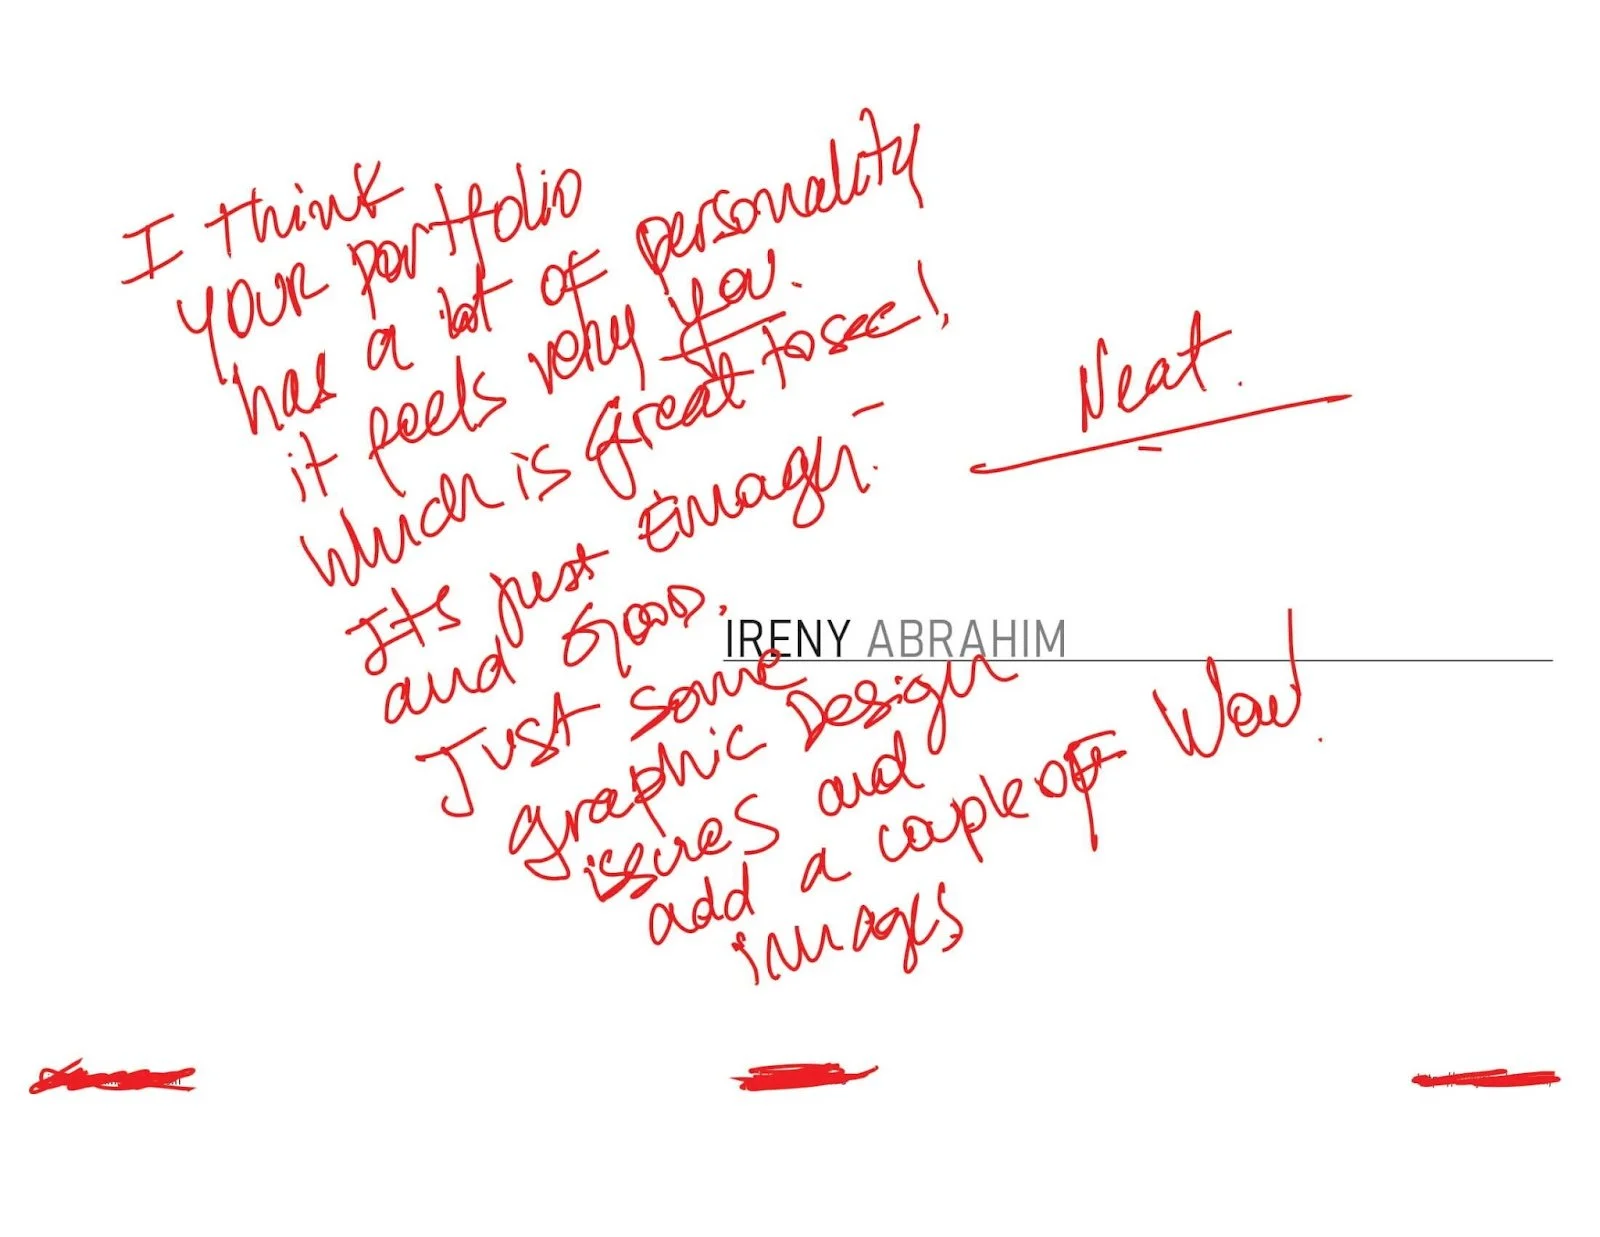 I think
your portfolio
has a lot of personality
it feels very you.
which is great to see!
Its just Enough.
and Good.
Just some
graphic Design
issues and
add a couple of Wow!
images
Neat.
IRENY ABRAHIM